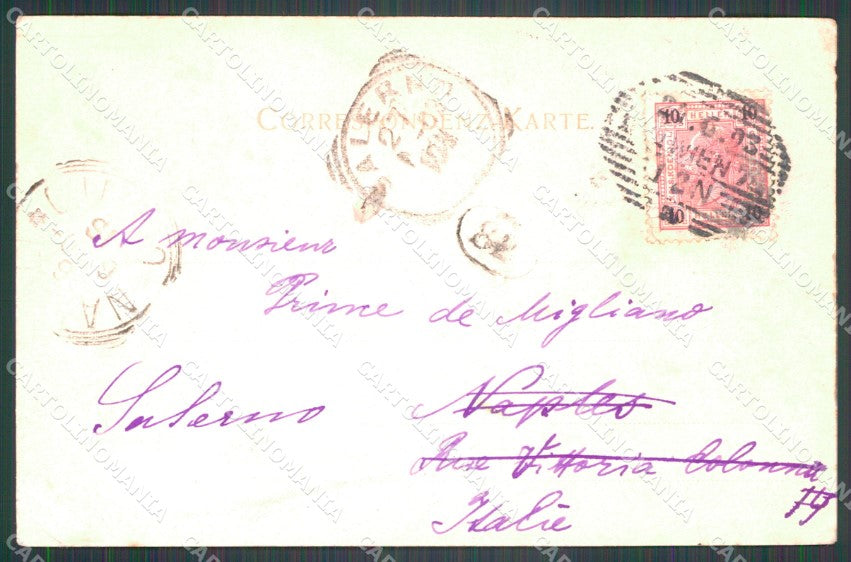 CORRESPONDENZ-KARTE.
SALERNO
10 HELLER 10
WIEN
10 10
84
A monsieur
Prince de Migliano
Salerno Naples
Rue Vittoria Colonna
Italie
CARTOLINOMANIA